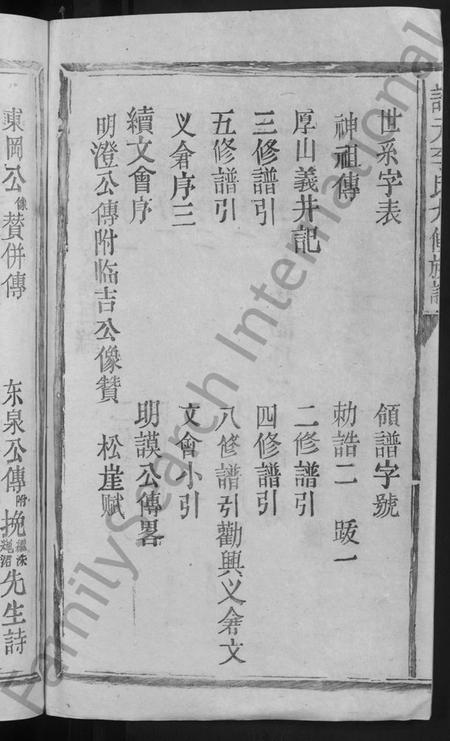 世系字表　領譜字號
神祖傳　勅誥二　跋一
厚山義井記　二修譜引
三修譜引　四修譜引
五修譜引　八修譜引勸興义會文
义會序三　文會小引
續文會序　明謨公傳畧
明澄公傳附临吉公像贊　松崖赋
東岡公像贊併傳　东泉公傳附挽先生詩
FamilySearch International